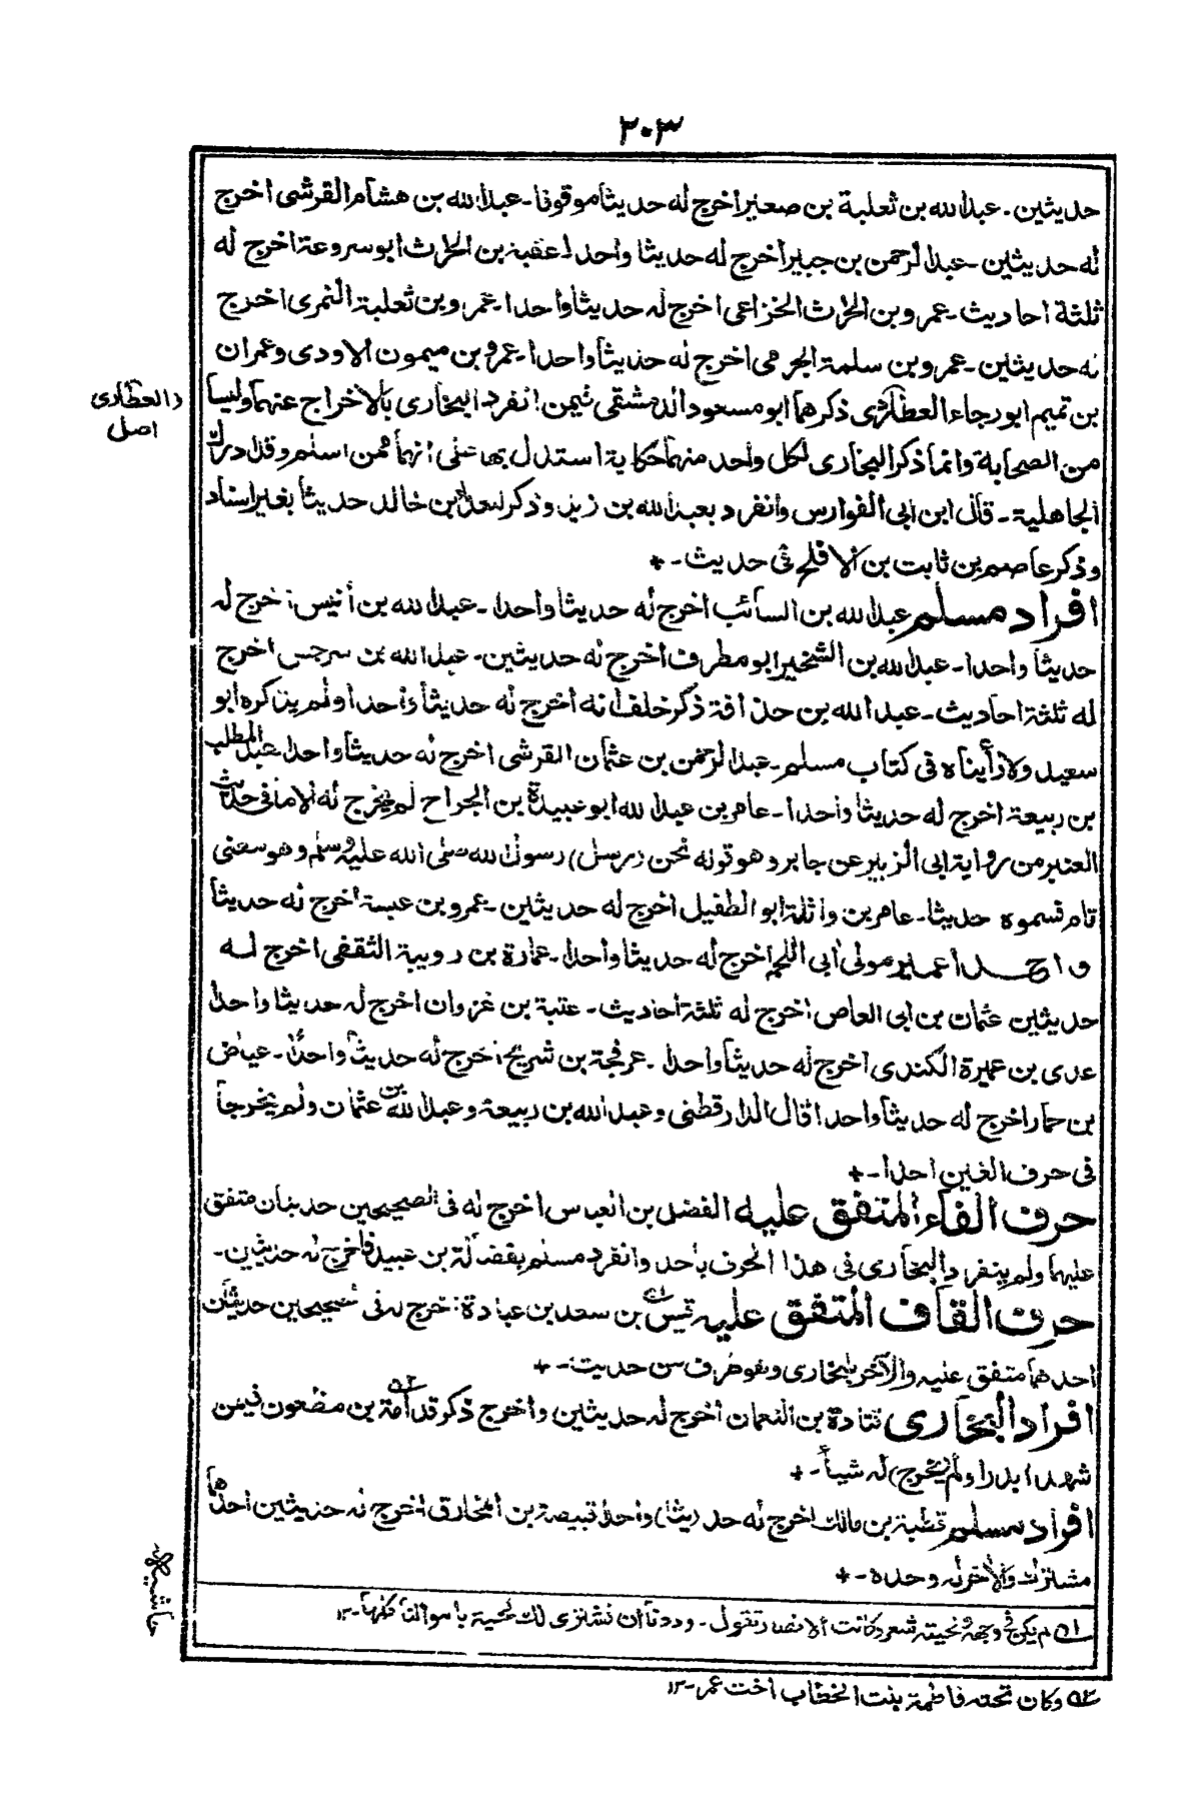 ٢٠٣
حديثين ـ عبدالله بن ثعلبة بن صعير اخرج له حديثا موقوفا ـ عبدالله بن هشام القرشى اخرج
له حديثين ـ عبدالرحمن بن جبير اخرج له حديثا واحدا عقبة بن الحرث ابو سروعة اخرج له
ثلثة احاديث ـ عمرو بن الحرث الخزاعى اخرج له حديثا واحدا ـ عمرو بن ثعلبة النمرى اخرج
له حديثين ـ عمرو بن سلمة الجرمى اخرج له حديثا واحدا ـ عمرو بن ميمون الاودى وعمران
بن تميم ابو رجاء العطاردى ذكرهما ابو مسعود الدمشقى فيمن انفرد البخارى بالاخراج عنهما وليسا
والعطاردى
اصل
من الصحابة وانما ذكر البخارى لكل واحد منهما حكاية استدل بها على انهما ممن اسلم وقد ادرك
الجاهلية ـ قال ابن ابى الفوارس وانفرد بعبدالله بن زيد وذكر لعداء بن خالد حديثا بغير اسناد
وذكر عاصم بن ثابت بن الافلح فى حديث ـ +
افراد مسلم عبدالله بن السائب اخرج له حديثا واحدا ـ عبدالله بن انيس اخرج له
حديثا واحدا ـ عبدالله بن الشخير ابو مطرف اخرج له حديثين ـ عبدالله بن سرجس اخرج
له ثلثة احاديث ـ عبدالله بن حذافة ذكر خلف انه اخرج له حديثا واحدا ولم يذكره ابو
سعيد ولا رأيناه فى كتاب مسلم ـ عبدالرحمن بن عثمان القرشى اخرج له حديثا واحدا عبدالمطلب
بن ربيعة اخرج له حديثا واحدا ـ عامر بن عبدالله ابو عبيدة بن الجراح لم يخرج له الا ما فى حديث
العنبر من رواية ابى الزبير عن جابر وهو قوله نحن (رسل) رسول الله صلى الله عليه وسلم وهو معنى
تام فسموه حديثا ـ عامر بن واثلة ابو الطفيل اخرج له حديثين ـ عمرو بن عبسة اخرج له حديثا
واحدا عمير مولى ابى اللحم اخرج له حديثا واحدا ـ عمارة بن رويبة الثقفى اخرج له
حديثين عثمان بن ابى العاص اخرج له ثلثة احاديث ـ عتبة بن غزوان اخرج له حديثا واحدا
عدى بن عميرة الكندى اخرج له حديثا واحدا ـ عرفجة بن شريح اخرج له حديثا واحدا ـ عياض
بن حمار اخرج له حديثا واحدا قال الدارقطنى وعبدالله بن ربيعة وعبدالله بن عثمان ولم يخرجا
فى حرف الغين احدا ـ +
حرف الفاء المتفق عليه الفضل بن العباس اخرج له فى الصحيحين حديثان متفق
عليهما ولم ينفرد البخارى فى هذا الحرف باحد وانفرد مسلم بفضالة بن عبيد فاخرج له حديثين ـ
حرف القاف المتفق عليه قيس ١ه بن سعد بن عبادة اخرج له فى الصحيحين حديثان
احدهما متفق عليه والآخر للبخارى وهو طرف من حديث ـ +
افراد البخارى قتادة بن النعمان اخرج له حديثين واخرج ذكر قدامة ٢ه بن مظعون فيمن
شهد ابدرا ولم (يخرج) له شيأ ـ +
افراد مسلم قطبة بن مالك اخرج له حد (يثا) واحدا قبيصة بن المخارق اخرج له حديثين احدهما
مشترك والآخر له وحده ـ +
حاشيه
١ه لم يكن فى وجهه لحيته شعر وكانت الانصار تقول ـ وددنا ان نشترى لك لحية باموالنا كلها ـ ١٢
٢ه وكان تحته فاطمة بنت الخطاب اخت عمر ـ ١٢